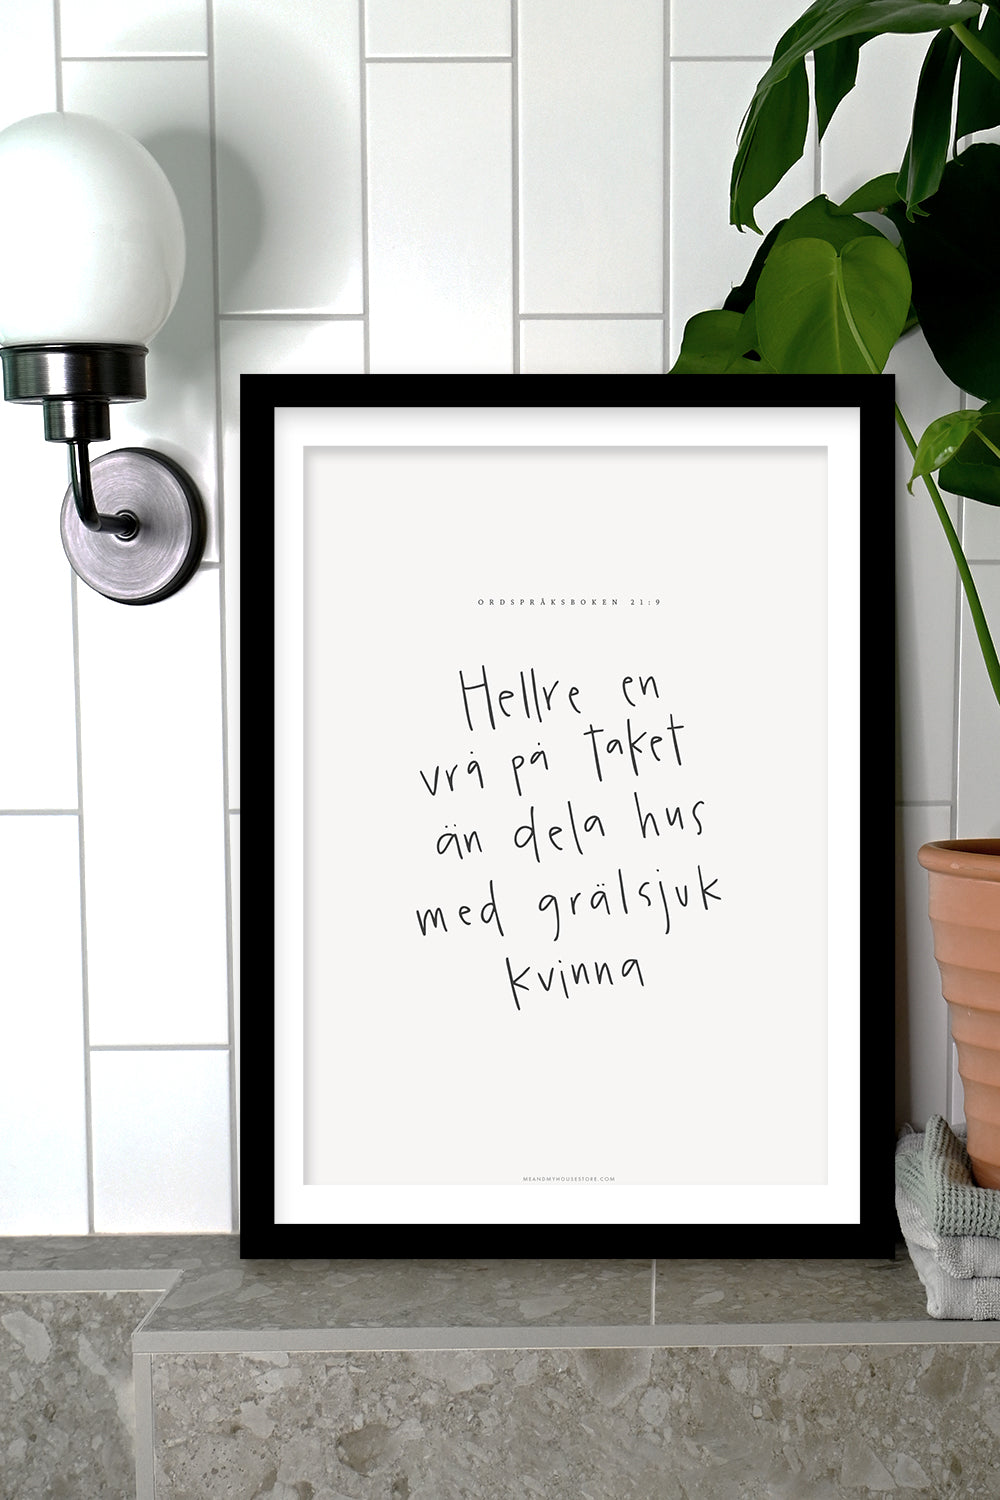 ORDSPRÅKSBOKEN 21:9
Hellre en
vrå på taket
än dela hus
med grälsjuk
kvinna
MEANDMYHOUSESTORE.COM